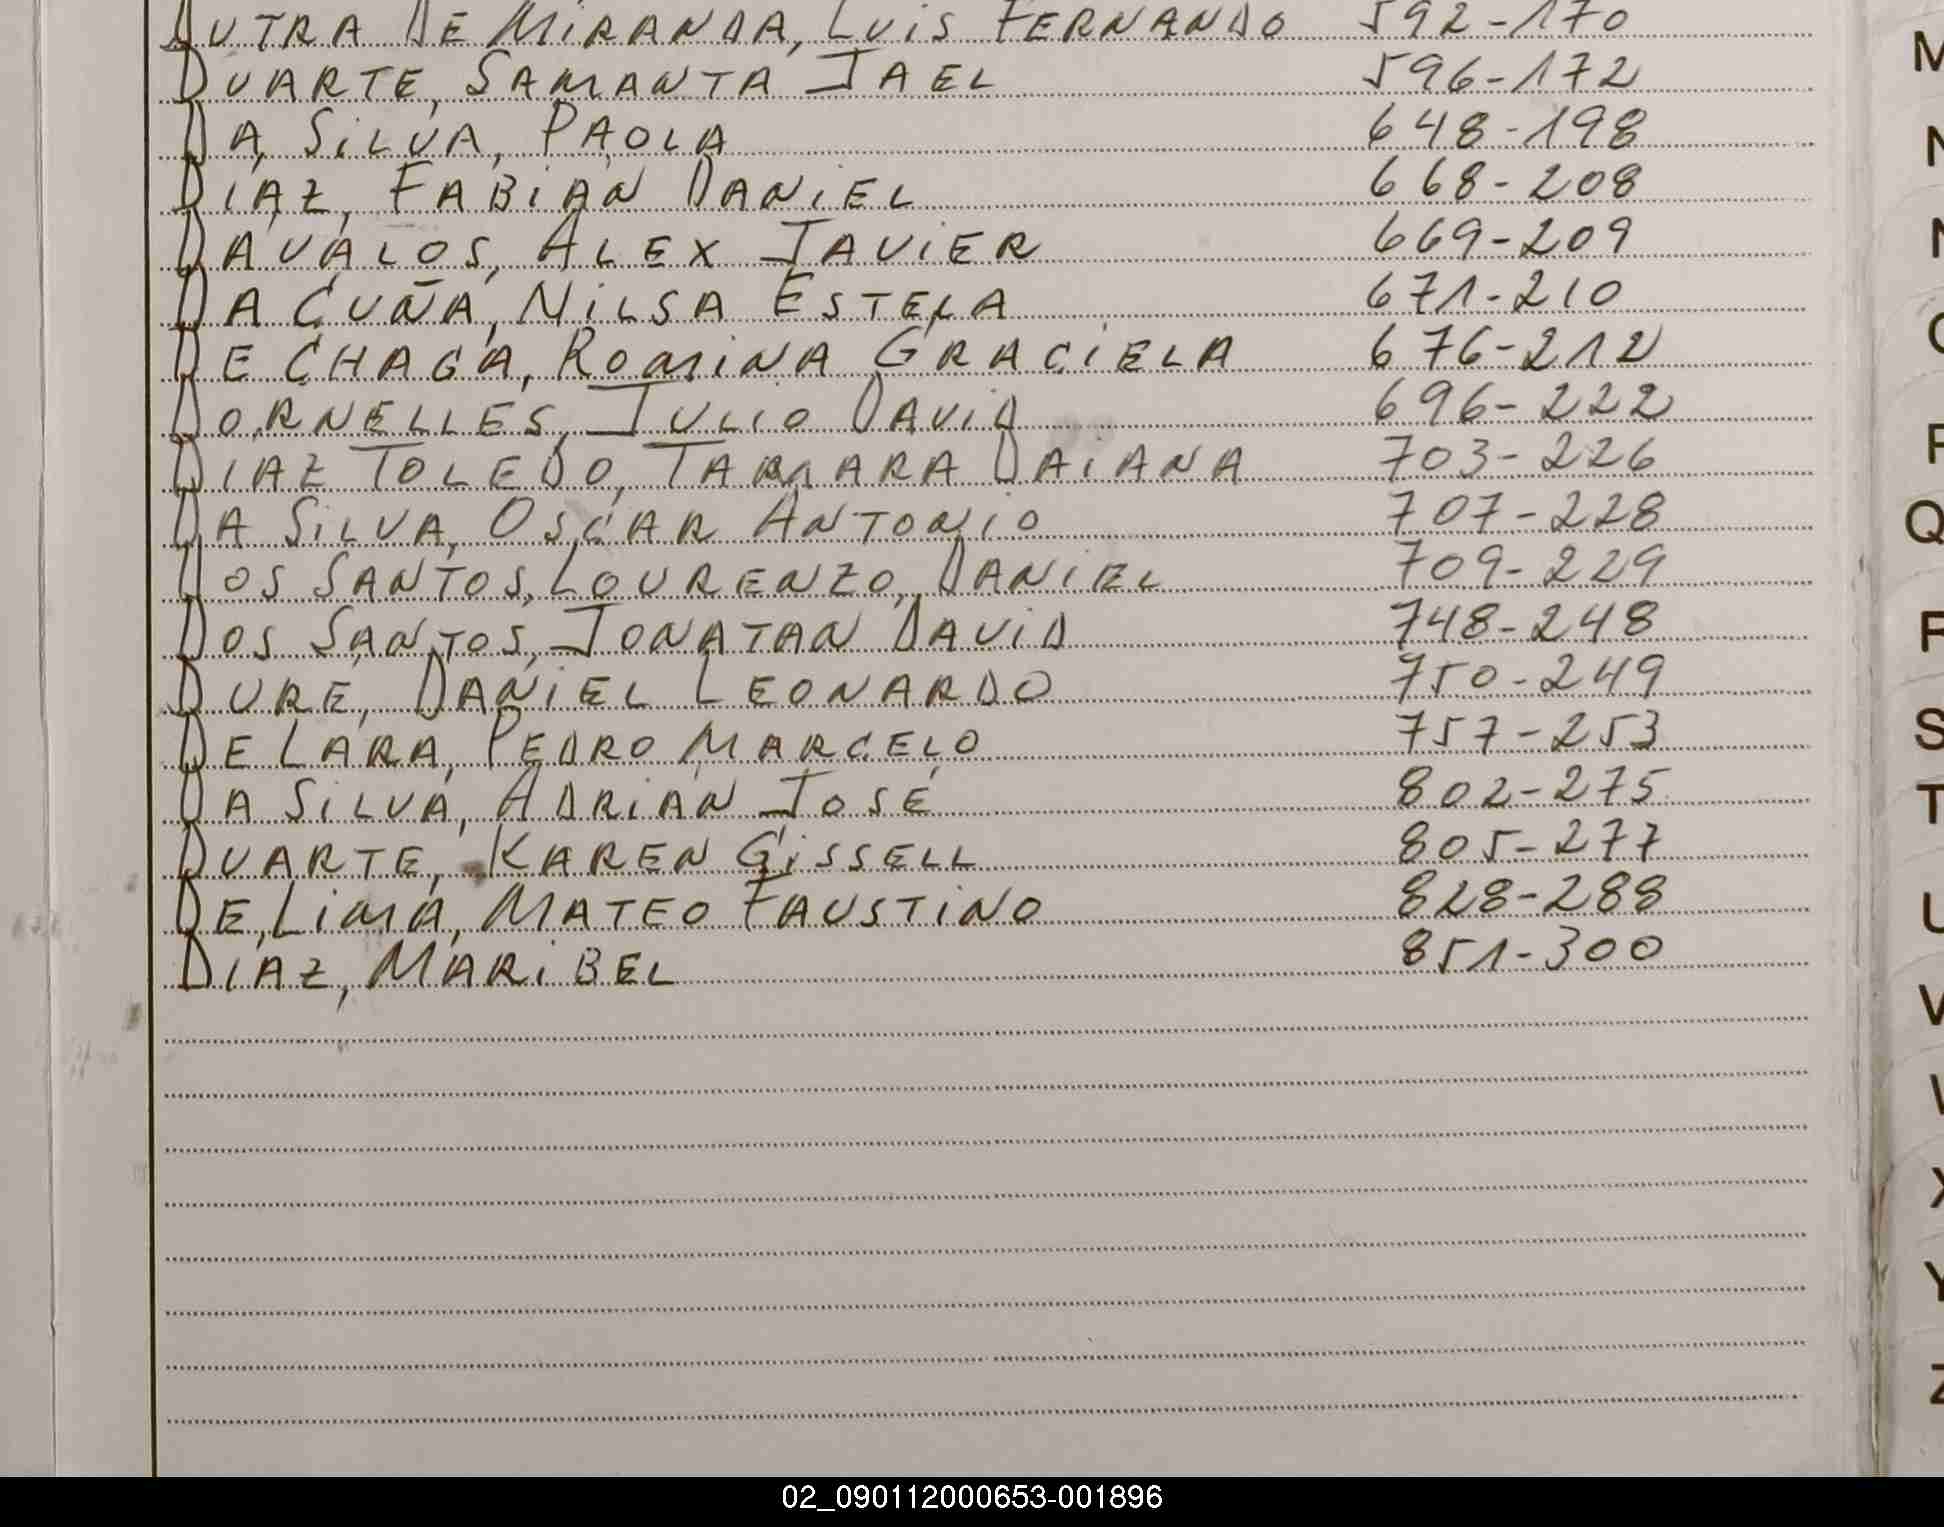 DUTRA DE MIRANDA, LUIS FERNANDO 592-170
DUARTE, SAMANTA JAEL 596-172
DA SILVA, PAOLA 648-198
DIAZ, FABIAN DANIEL 668-208
DAVALOS, ALEX JAVIER 669-209
DA CUÑA, NILSA ESTELA 671-210
DE CHAGA, ROMINA GRACIELA 676-212
DORNELLES, JULIO DAVID 696-222
DIAZ TOLEDO, TAMARA DAIANA 703-226
DA SILVA, OSCAR ANTONIO 707-228
DOS SANTOS, LOURENZO, DANIEL 709-229
DOS SANTOS, JONATAN DAVID 748-248
DURE, DANIEL LEONARDO 750-249
DE LARA, PEDRO MARCELO 757-253
DA SILVA, ADRIAN JOSÉ 802-275
DUARTE, KAREN GISSELL 805-277
DE LIMA, MATEO FAUSTINO 828-288
DIAZ, MARIBEL 851-300
M
N
Q
R
S
T
U
V
W
X
Y
Z
02_090112000653-001896